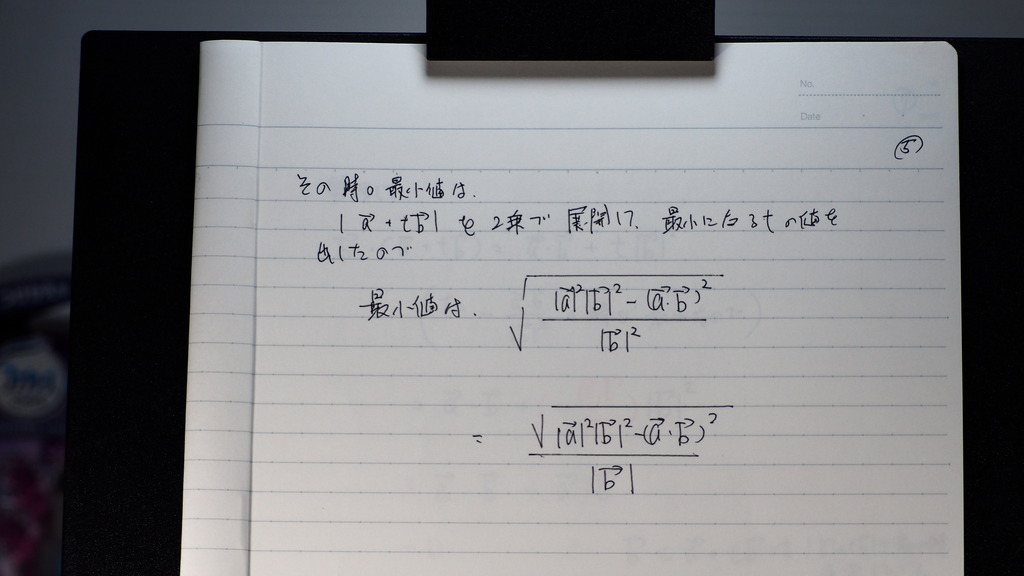 No.
Date
⑤
その時の最小値は.
|a⃗ + tb⃗| を 2乗で 展開して、最小になるtの値を
出したので
最小値は. √((|a⃗|²|b⃗|² - (a⃗・b⃗)²) / |b⃗|²)
= √(|a⃗|²|b⃗|² - (a⃗・b⃗)²) / |b⃗|